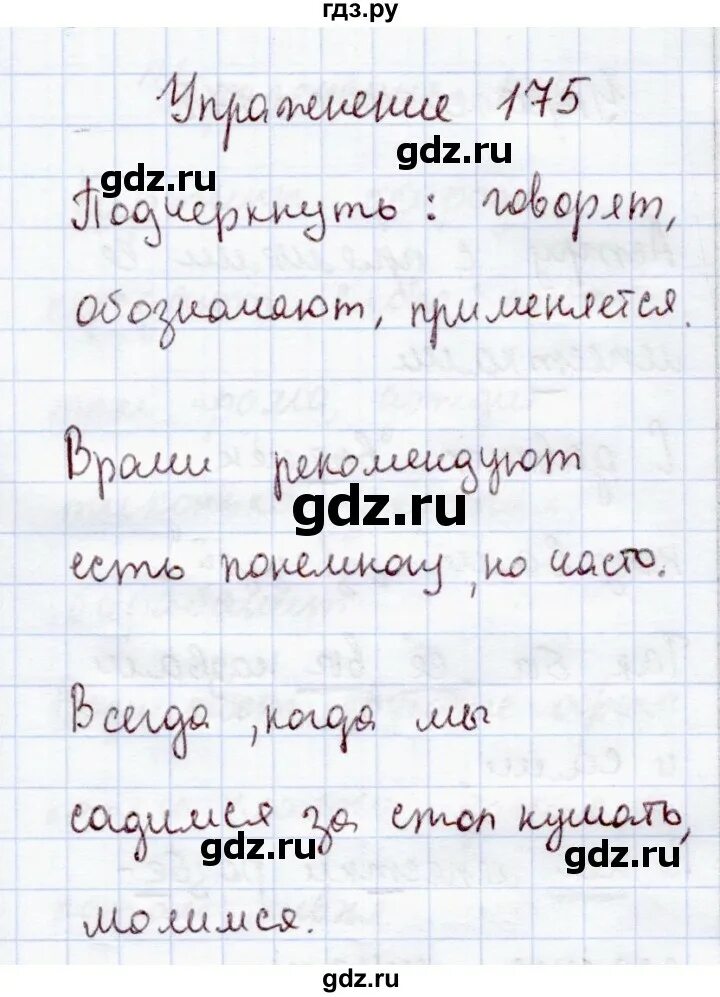 гдз.ру
Упражнение 175
gdz.ru gdz.ru
Подчеркнуть: говорят,
обозначают, применяется.
Врачи рекомендуют
gdz.ru
есть понемногу, но часто.
Всегда, когда мы
садимся за стол кушать,
gdz.ru gdz.ru
молимся.
gdz.ru